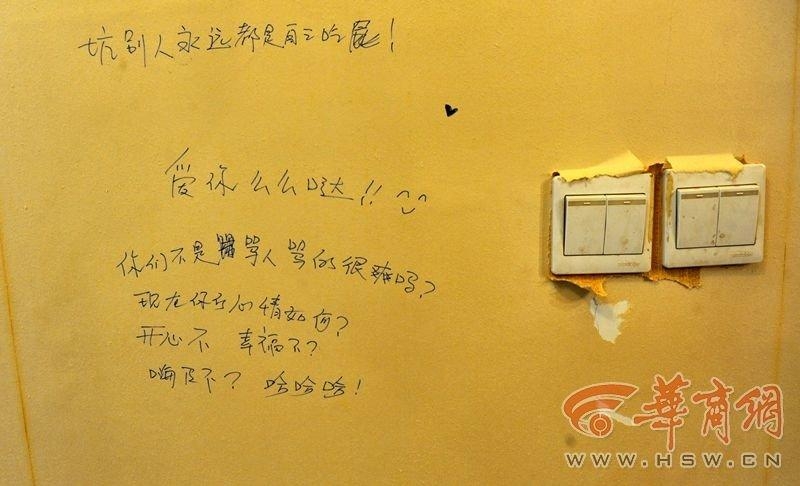 坑别人永远都是自己吃屁！
爱你么么哒!!
你们不是骂人骂的很爽吗？
现在你们心情如何？
开心不 幸福不？
嗨皮不？ 哈哈哈！
華商網
WWW.HSW.CN